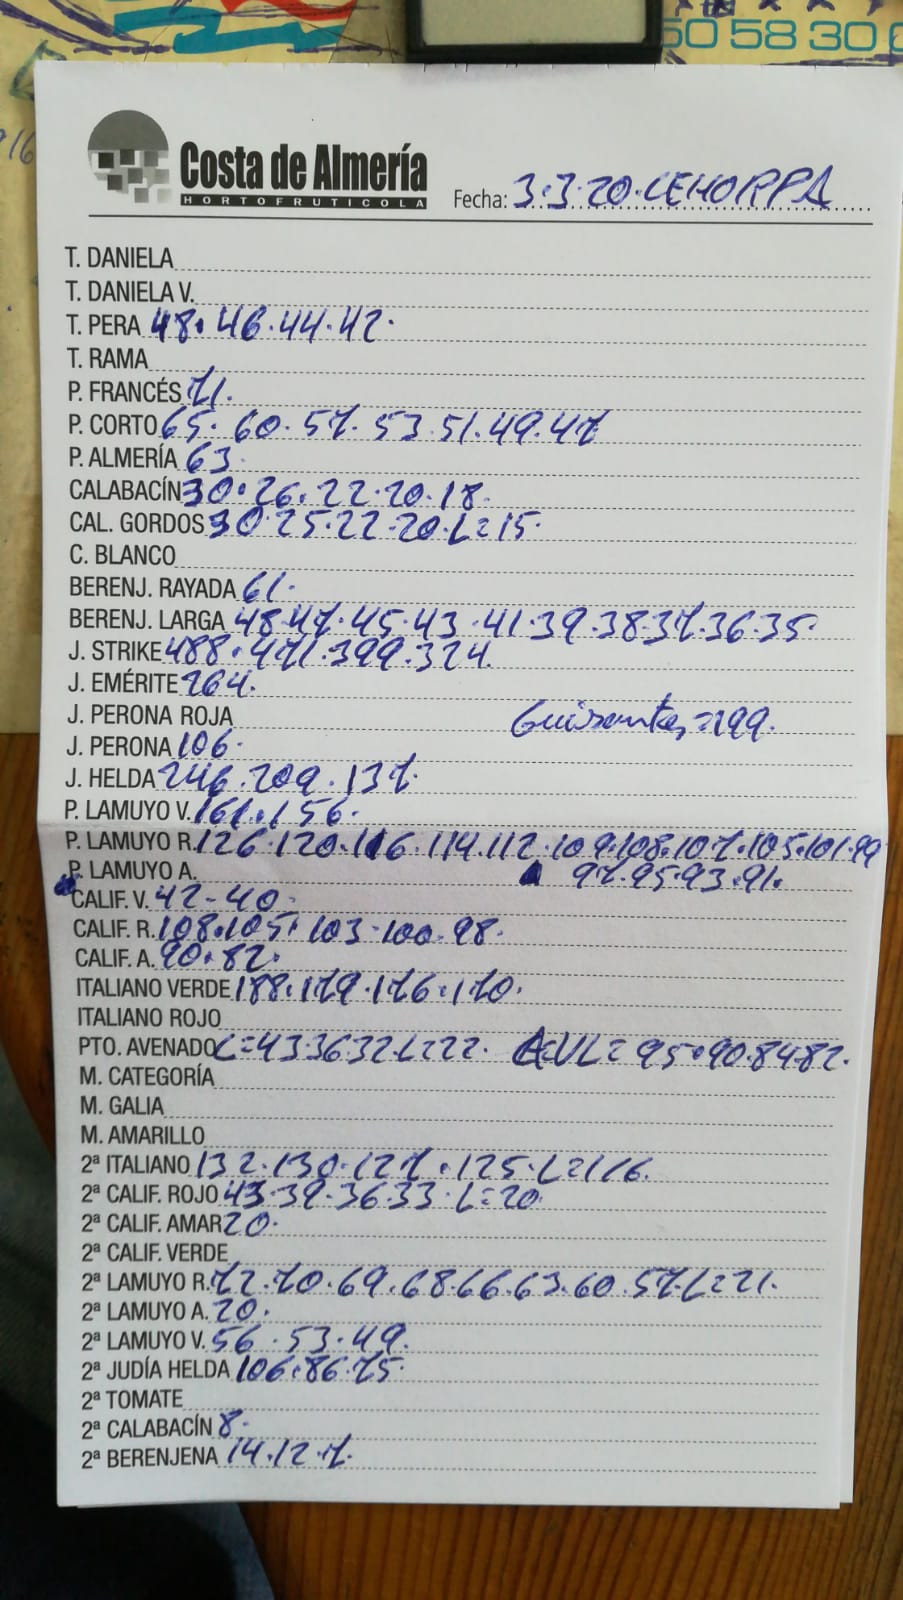 50 58 30
Costa de Almería
HORTOFRUTICOLA
Fecha: 3.3.20.CEHORPA
T. DANIELA
T. DANIELA V.
T. PERA 48.46.44.42.
T. RAMA
P. FRANCÉS 71.
P. CORTO 65.60.57.53.51.49.47
P. ALMERÍA 63.
CALABACÍN 30.26.22.20.18.
CAL. GORDOS 30.25.22.20.L=15.
C. BLANCO
BERENJ. RAYADA 61.
BERENJ. LARGA 48.47.45.43.41.39.38.37.36.35.
J. STRIKE 488.471.399.324.
J. EMÉRITE 264.
J. PERONA ROJA Guisantes=199.
J. PERONA 106.
J. HELDA 246.209.137.
P. LAMUYO V. 161.156.
P. LAMUYO R. 126.120.116.114.112.109.108.107.105.101.99
P. LAMUYO A. 97.95.93.91.
CALIF. V. 42-40.
CALIF. R. 108.105.103.100.98.
CALIF. A. 90.82.
ITALIANO VERDE 188.179.176.170.
ITALIANO ROJO
PTO. AVENADO L=43.36.32.L=22. 95.90.84.82.
M. CATEGORÍA
M. GALIA
M. AMARILLO
2ª ITALIANO 132.130.127.125.L=116.
2ª CALIF. ROJO 43.39.36.33.L=20.
2ª CALIF. AMAR 20.
2ª CALIF. VERDE
2ª LAMUYO R. 72.70.69.68.66.63.60.57.L=21.
2ª LAMUYO A. 20.
2ª LAMUYO V. 56.53.49.
2ª JUDÍA HELDA 106.86.75.
2ª TOMATE
2ª CALABACÍN 8.
2ª BERENJENA 14.12.7.